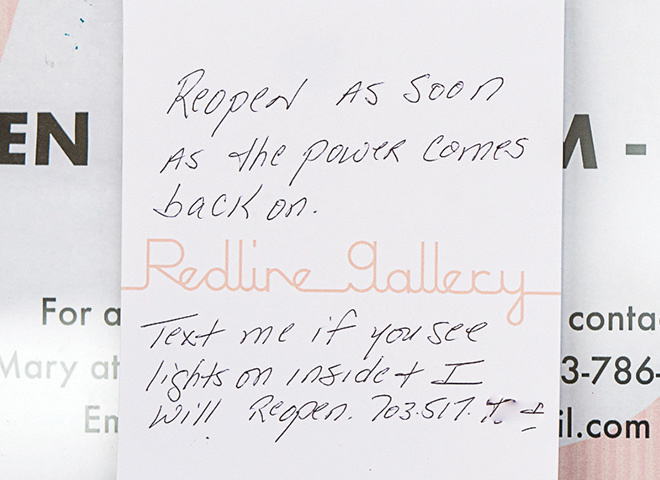 EN
M -
Reopen As Soon
As the power comes
back on.
Redline gallery
For a
conta
Text me if you see
Mary at
3-786-
lights on inside + I
Em
il.com
will Reopen. 703.517.